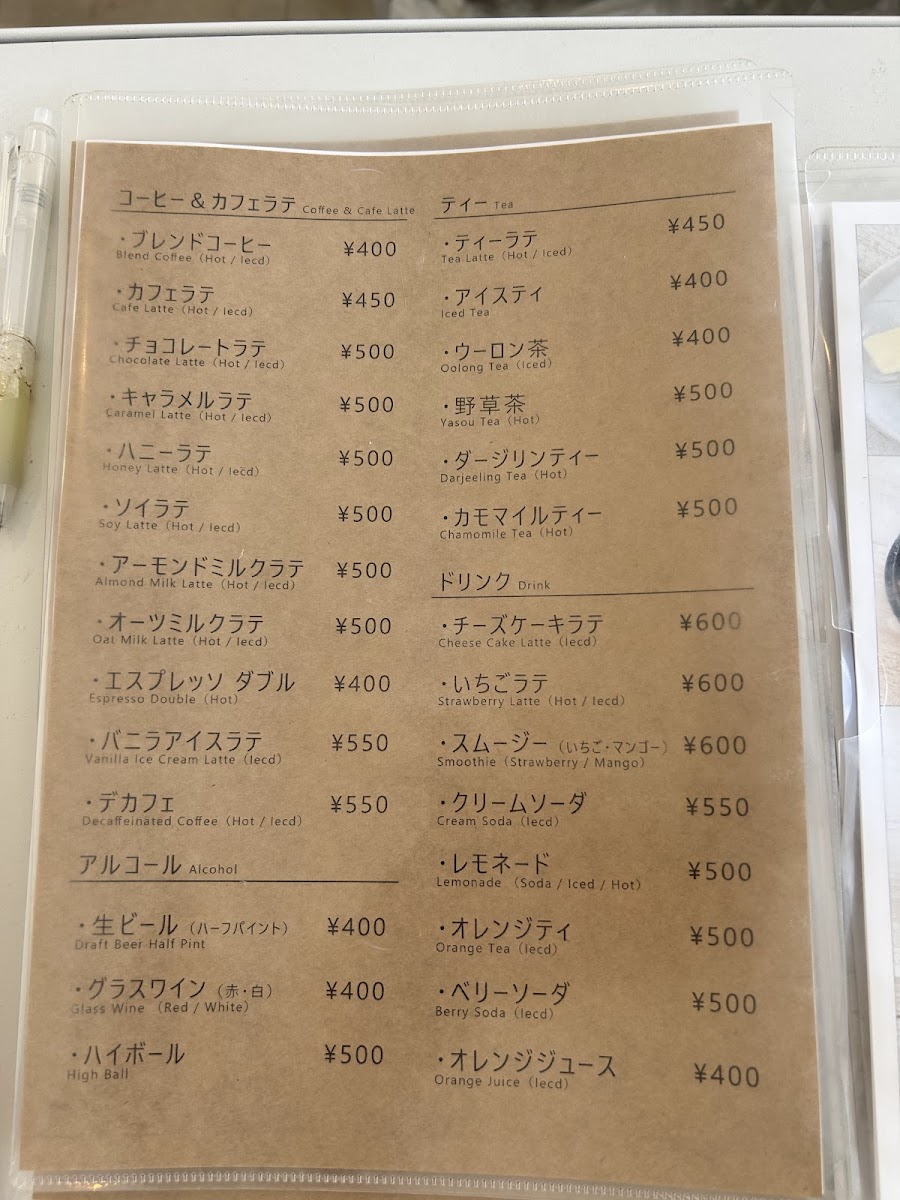 コーヒー & カフェラテ Coffee & Cafe Latte
・ブレンドコーヒー ¥400
Blend Coffee (Hot / Iecd)
・カフェラテ ¥450
Cafe Latte (Hot / Iecd)
・チョコレートラテ ¥500
Chocolate Latte (Hot / Iecd)
・キャラメルラテ ¥500
Caramel Latte (Hot / Iecd)
・ハニーラテ ¥500
Honey Latte (Hot / Iecd)
・ソイラテ ¥500
Soy Latte (Hot / Iecd)
・アーモンドミルクラテ ¥500
Almond Milk Latte (Hot / Iecd)
・オーツミルクラテ ¥500
Oat Milk Latte (Hot / Iecd)
・エスプレッソ ダブル ¥400
Espresso Double (Hot)
・バニラアイスラテ ¥550
Vanilla Ice Cream Latte (Iecd)
・デカフェ ¥550
Decaffeinated Coffee (Hot / Iecd)
アルコール Alcohol
・生ビール (ハーフパイント) ¥400
Draft Beer Half Pint
・グラスワイン (赤・白) ¥400
Glass Wine (Red / White)
・ハイボール ¥500
High Ball
ティー Tea
・ティーラテ ¥450
Tea Latte (Hot / Iced)
・アイスティ ¥400
Iced Tea
・ウーロン茶 ¥400
Oolong Tea (Iced)
・野草茶 ¥500
Yasou Tea (Hot)
・ダージリンティー ¥500
Darjeeling Tea (Hot)
・カモマイルティー ¥500
Chamomile Tea (Hot)
ドリンク Drink
・チーズケーキラテ ¥600
Cheese Cake Latte (Iecd)
・いちごラテ ¥600
Strawberry Latte (Hot / Iecd)
・スムージー (いちご・マンゴー) ¥600
Smoothie (Strawberry / Mango)
・クリームソーダ ¥550
Cream Soda (Iecd)
・レモネード ¥500
Lemonade (Soda / Iced / Hot)
・オレンジティ ¥500
Orange Tea (Iecd)
・ベリーソーダ ¥500
Berry Soda (Iecd)
・オレンジジュース ¥400
Orange Juice (Iecd)